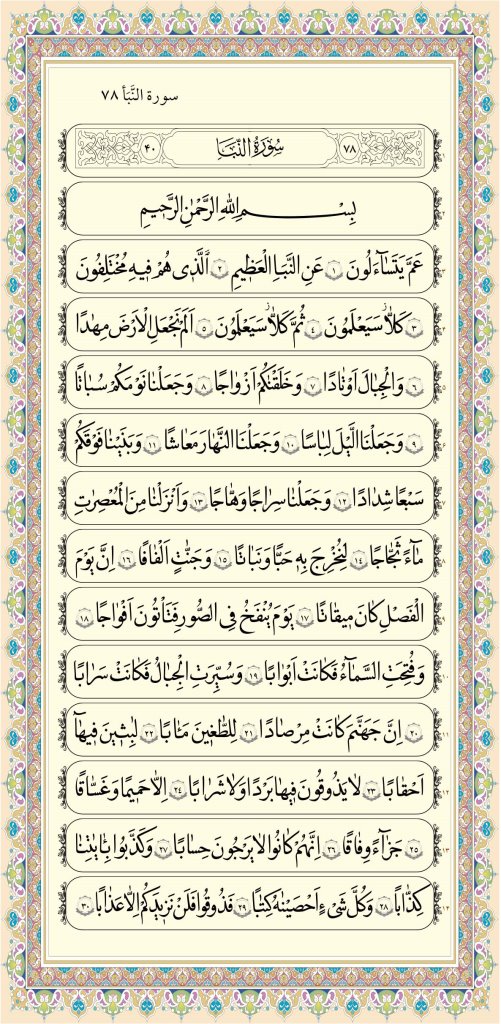 سورة النَّبَأ ٧٨
٧٨ سُورَةُ النَّبَاِ ٤٠
بِسْمِ اللهِ الرَّحْمٰنِ الرَّحٖيمِ
٢ عَمَّ يَتَسَٓاءَلُونَ ١ عَنِ النَّبَاِ الْعَظٖيمِ ٢ اَلَّذٖى هُمْ فٖيهِ مُخْتَلِفُونَ
٣ كَلَّا سَيَعْلَمُونَ ٤ ثُمَّ كَلَّا سَيَعْلَمُونَ ٥ اَلَمْ نَجْعَلِ الْاَرْضَ مِهَادًا
٦ وَالْجِبَالَ اَوْتَادًا ٧ وَخَلَقْنَاكُمْ اَزْوَاجًا ٨ وَجَعَلْنَا نَوْمَكُمْ سُبَاتًا
٩ وَجَعَلْنَا الَّيْلَ لِبَاسًا ١٠ وَجَعَلْنَا النَّهَارَ مَعَاشًا ١١ وَبَنَيْنَا فَوْقَكُمْ
سَبْعًا شِدَادًا ١٢ وَجَعَلْنَا سِرَاجًا وَهَّاجًا ١٣ وَاَنْزَلْنَا مِنَ الْمُعْصِرَاتِ
مَٓاءً ثَجَّاجًا ١٤ لِنُخْرِجَ بِهٖ حَبًّا وَنَبَاتًا ١٥ وَجَنَّاتٍ اَلْفَافًا ١٦ اِنَّ يَوْمَ
الْفَصْلِ كَانَ مٖيقَاتًا ١٧ يَوْمَ يُنْفَخُ فِى الصُّورِ فَتَاْتُونَ اَفْوَاجًا ١٨
وَفُتِحَتِ السَّمَٓاءُ فَكَانَتْ اَبْوَابًا ١٩ وَسُيِّرَتِ الْجِبَالُ فَكَانَتْ سَرَابًا
٢٠ اِنَّ جَهَنَّمَ كَانَتْ مِرْصَادًا ٢١ لِلطَّاغٖينَ مَاٰبًا ٢٢ لَابِثٖينَ فٖيهَٓا
اَحْقَابًا ٢٣ لَا يَذُوقُونَ فٖيهَا بَرْدًا وَلَا شَرَابًا ٢٤ اِلَّا حَمٖيمًا وَغَسَّاقًا
٢٥ جَزَٓاءً وِفَاقًا ٢٦ اِنَّهُمْ كَانُوا لَا يَرْجُونَ حِسَابًا ٢٧ وَكَذَّبُوا بِاٰيَاتِنَا
كِذَّابًا ٢٨ وَكُلَّ شَیْءٍ اَحْصَيْنَاهُ كِتَابًا ٢٩ فَذُوقُوا فَلَنْ نَزٖيدَكُمْ اِلَّا عَذَابًا ٣٠